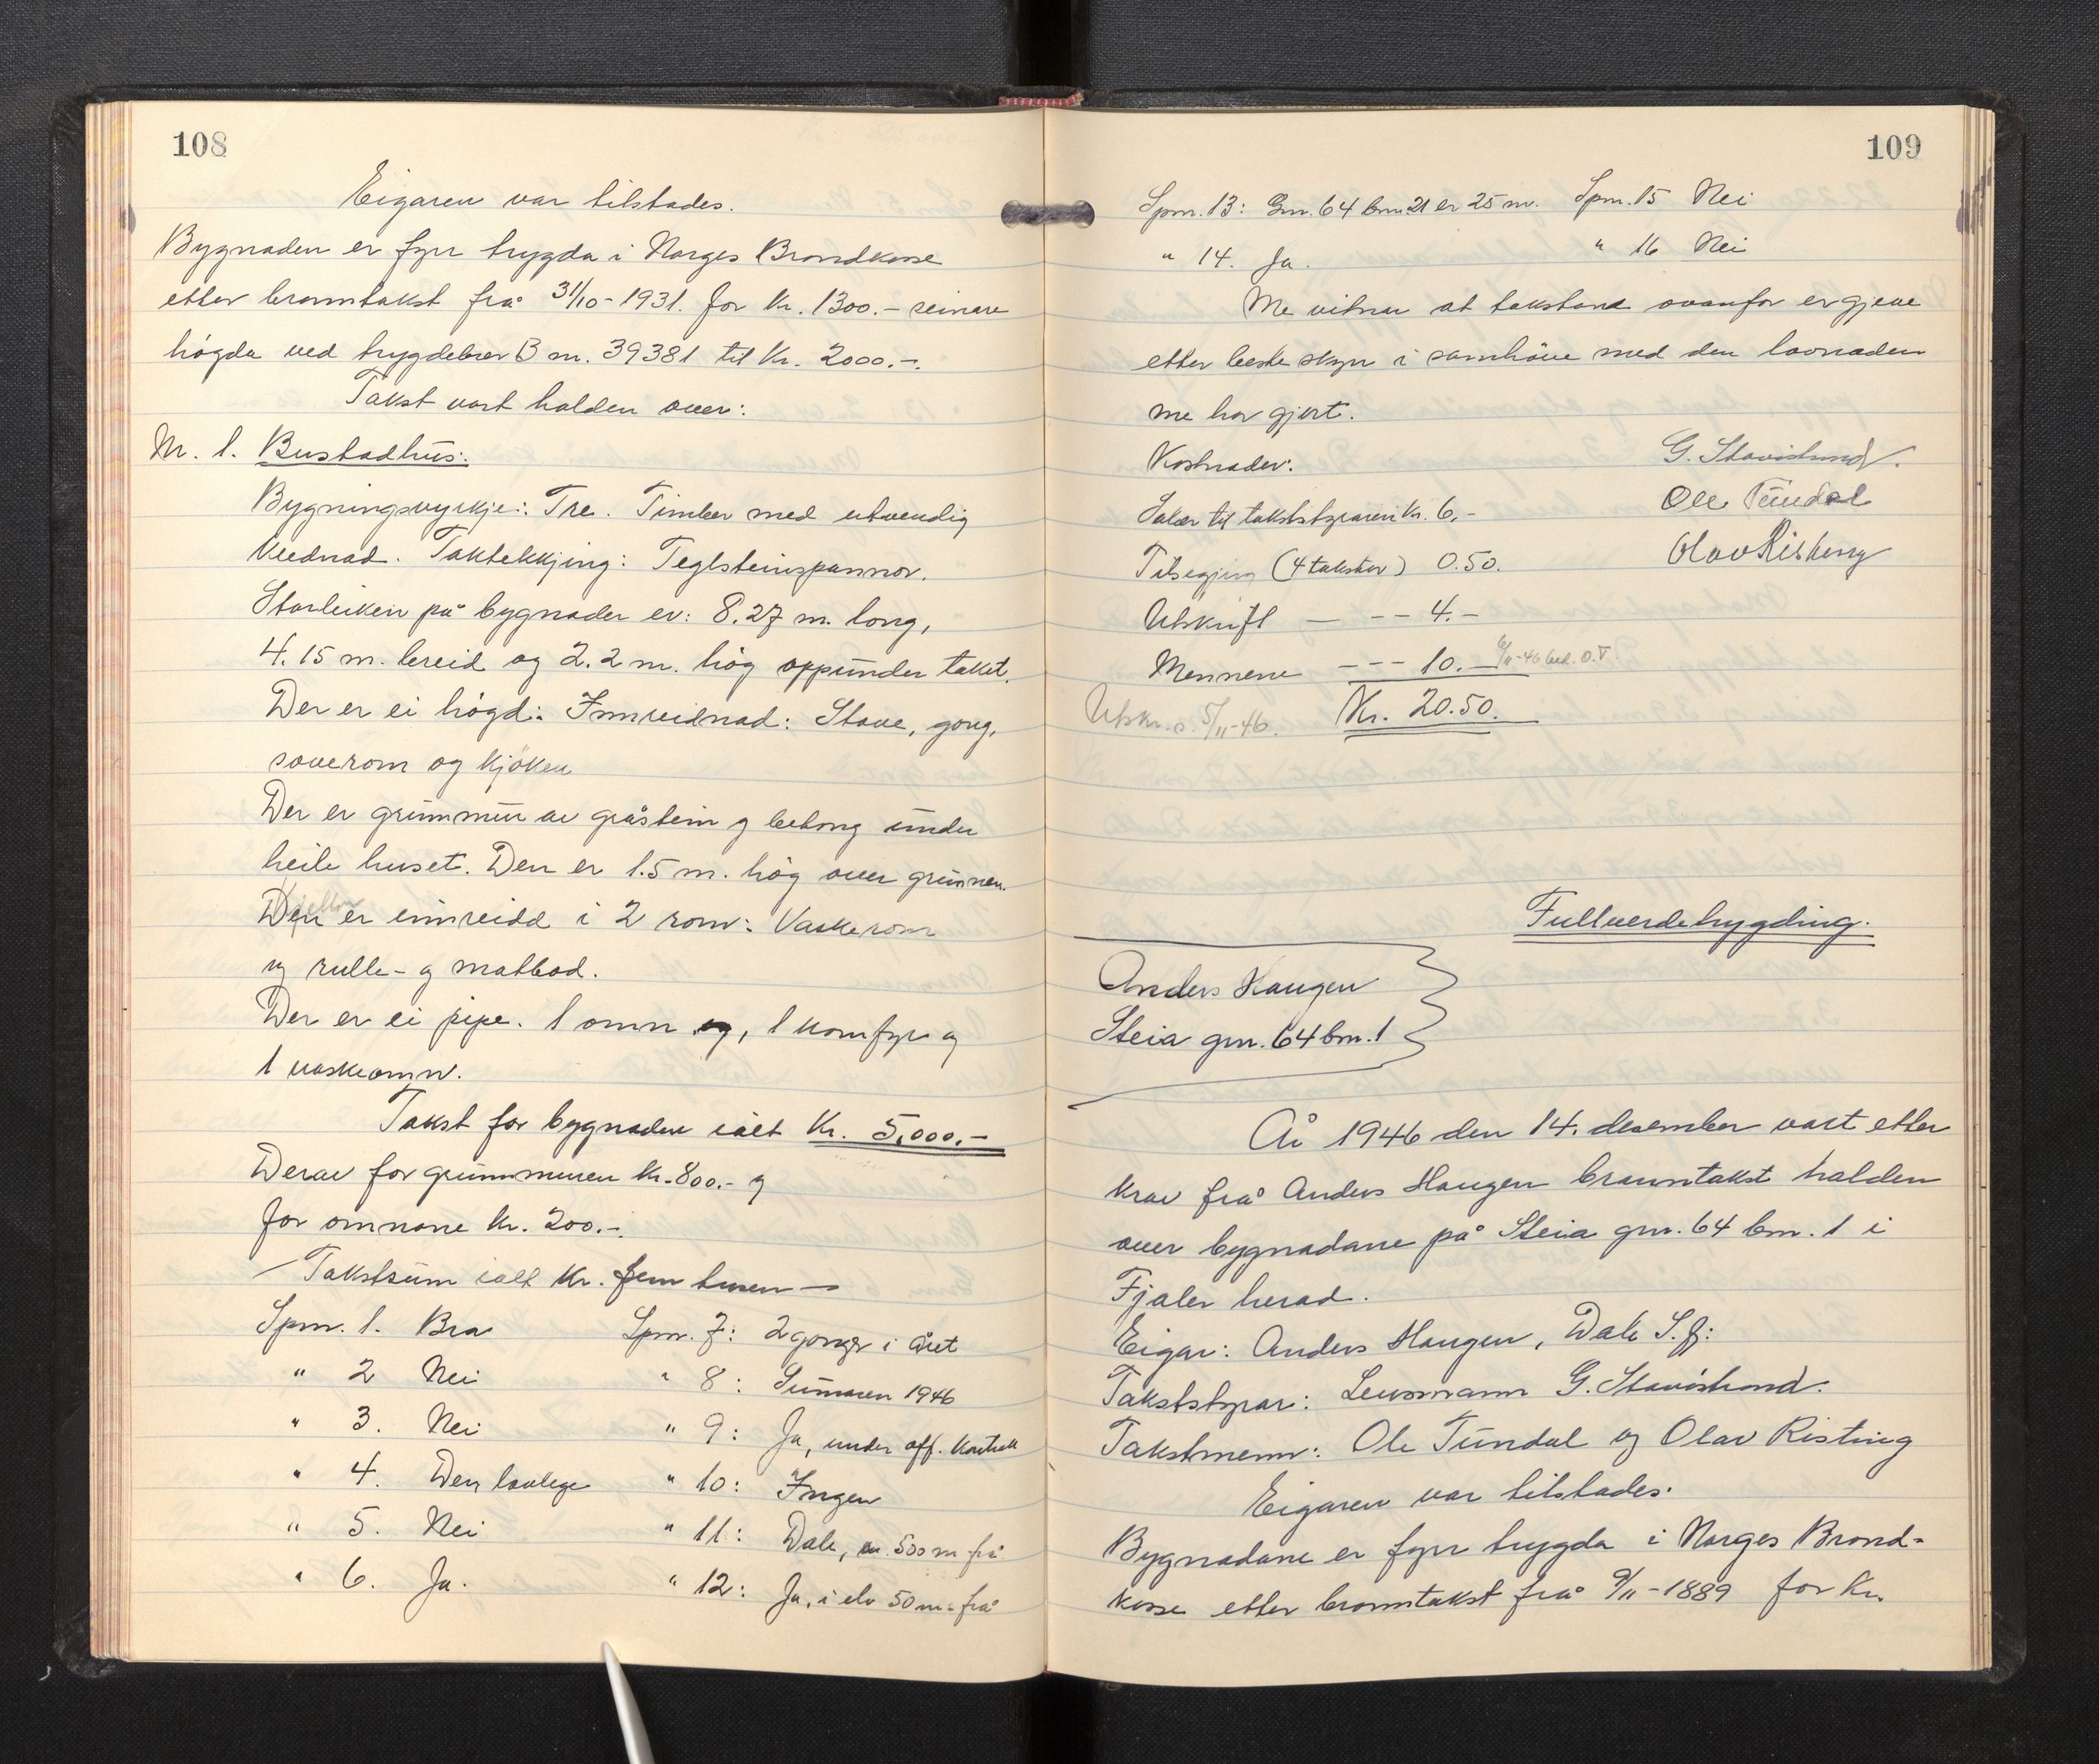 108
Eigaren var tilstades.
Bygnaden er fyrr trygda i Norges Brandkasse
etter branntakst frå 31/10-1931. for kr. 1300.- seinare
högda ved trygdebrev B nr. 39381 til kr. 2000.-.
Takst vart halden over:
Nr. 1. Bustadhus:
Bygningsvyrkje: Tre. Timber med utvendig
klednad. Taktekkjing: Teglsteinspannor.
Storleiken på bygnaden er: 8.27 m. long,
4.15 m. breid og 2.2 m. høg oppunder taket.
Der er ei högd: Innreidnad: Stove, gong,
soverom og kjöken
Der er grunnmur av gråstein og betong under
heile huset. Den er 1.5 m. høg over grunnen.
Kjellar
Den er innreidd i 2 rom: Vaskerom
og rulle- og matbod.
Der er ei pipe. 1 omn og, 1 komfyr og
1 vaskeomn.
Takst for bygnaden ialt Kr. 5,000.-
Derav for grunnmuren kr. 800.- og
for omnane kr. 200.-.
Takstsum ialt kr. fem tusen —
Spm. 1. Bra Spm. 7: 2 gonger i året
" 2 Nei " 8: Sumaren 1946
" 3. Nei " 9: Ja, under off. kontroll
" 4. Den lovlege " 10: Ingen
" 5. Nei " 11: Dale, ca. 500 m frå
" 6. Ja. " 12: Ja, i elv 50 m. frå
109
Spm. 13: Gnr. 64 bnr. 21 er 25 m. Spm. 15 Nei
" 14. Ja. " 16 Nei
Me vitnar at takstane ovanfor er gjeve
etter beste skyn i samhöve med den lovnaden
me har gjort.
Kostnader: G. Stavöstrand.
Salær til takststyraren kr. 6,- Ole Tundal
Tilsegjing (4 takster) 0.50. Olav Risting
Utskrift — - - 4.-
Mennene - - - 10.- 6/11-46 bet. O.T.
Utskr. s. 5/11-46. Kr. 20.50.
Fullverdetrygding.
Anders Haugen
Steia gnr. 64 bnr. 1
År 1946 den 14. desember vart etter
krav frå Anders Haugen branntakst halden
over bygnadane på Steia gnr. 64 bnr. 1 i
Fjaler herad.
Eigar: Anders Haugen, Dale S.fj:
Takststyrar: Lensmann G. Stavöstrand.
Takstmenn: Ole Tundal og Olav Risting
Eigaren var tilstades.
Bygnadane er fyrr trygda i Norges Brand-
kasse etter branntakst frå 9/11-1889 for kr.